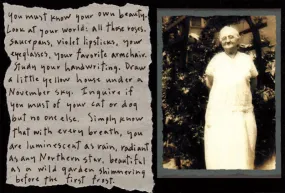 you must know your own beauty.
Look at your world: all those roses,
saucepans, violet lipsticks, your
eyeglasses, your favorite armchair.
Study your handwriting. Draw
a little yellow house under a
November sky. Inquire if
you must of your cat or dog
but no one else. Simply know
that with every breath, you
are luminescent as rain, radiant
as any Northern star, beautiful
as a wild garden shimmering
before the first frost.